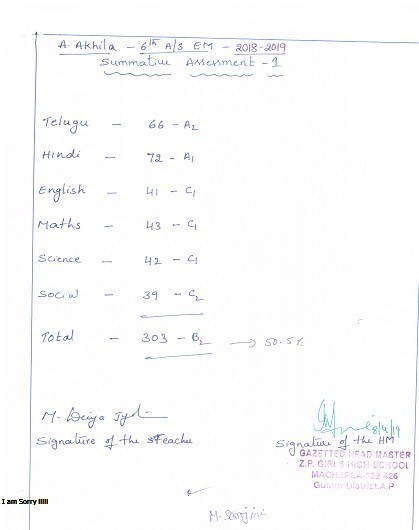 A. Akhila - 6th A/S EM - 2018-2019
Summative Assessment - 1
Telugu - 66 - A2
Hindi - 72 - A1
English - 41 - C1
Maths - 43 - C1
Science - 42 - C1
Social - 39 - C2
Total - 303 - B2 → 50.5%
M.
Signature of the sTeacher
8/4/19
Signature of the HM
GAZETTED HEAD MASTER
Z.P. GIRLS HIGH SCHOOL
MACHERLA-522 426
Guntur District.A.P
I am Sorry lllll
M. Sarojini